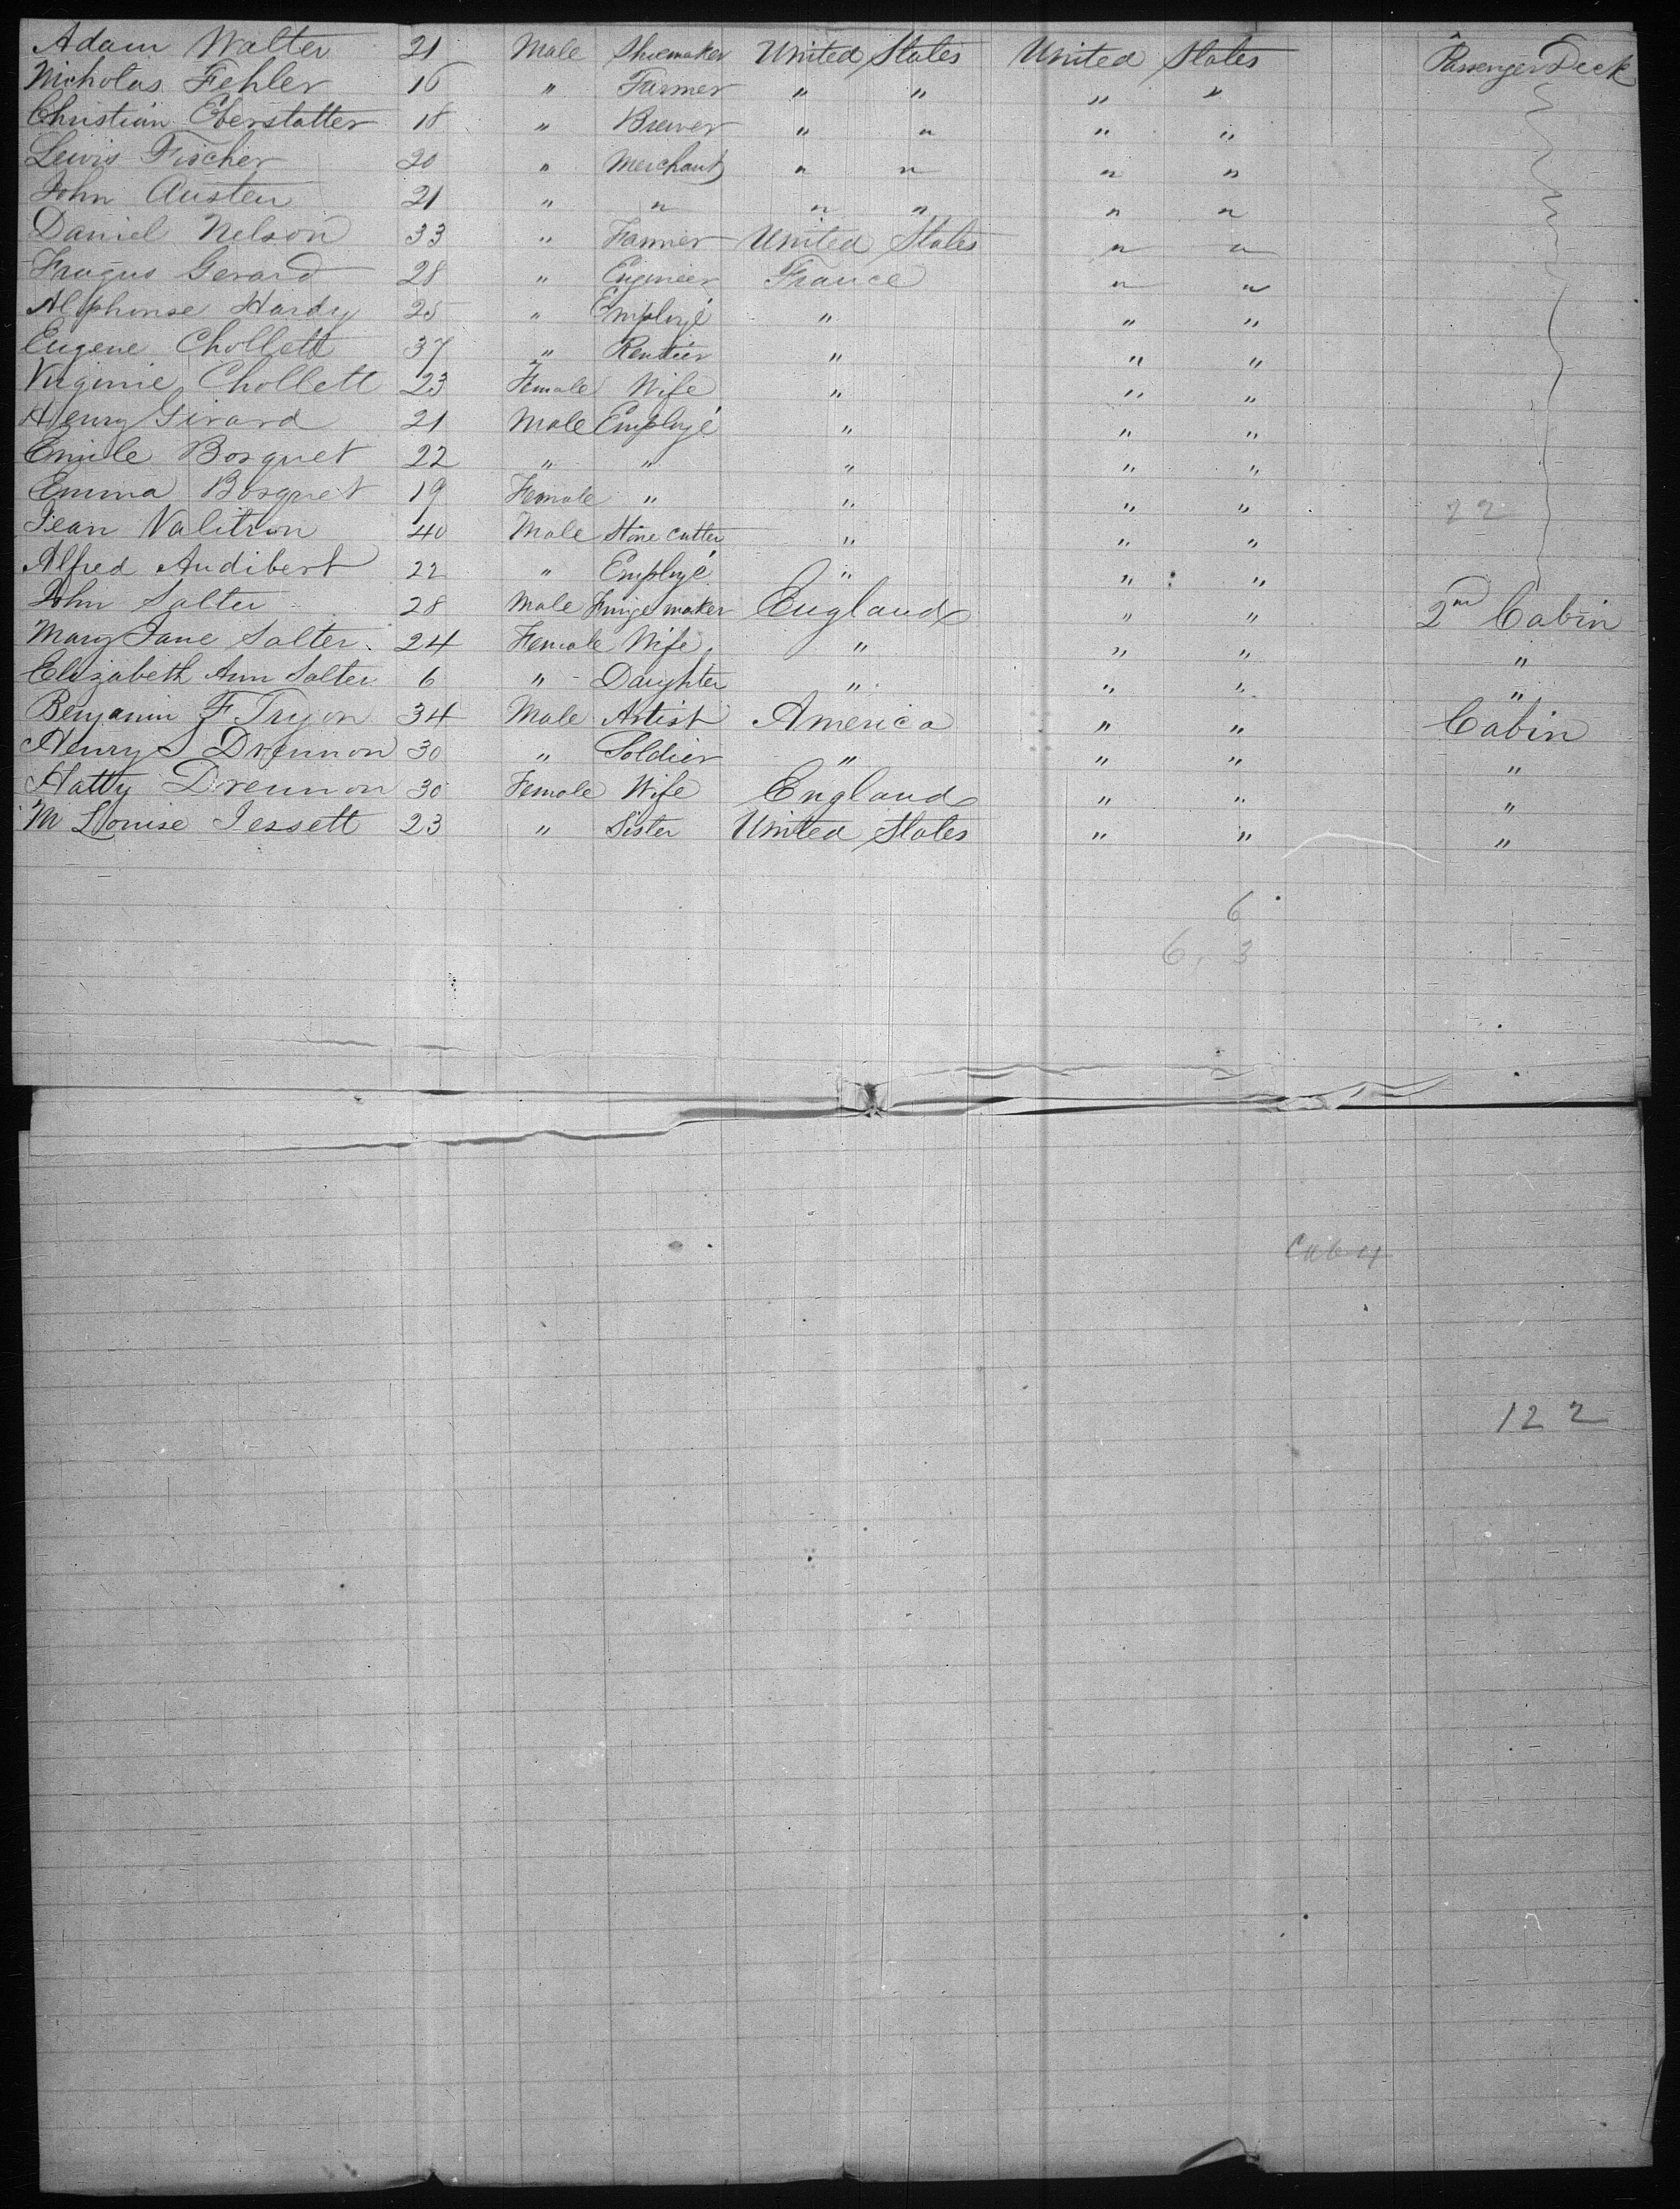 Adam Walter 21 Male Shoemaker United States United States Passenger Deck
Nicholas Fehler 16 " Farmer " " " "
Christian Eberstatter 18 " Brewer " " " "
Lewis Fischer 20 " Merchant " " " "
John Austen 21 " " " " " "
Daniel Nelson 33 " Farmer United States " "
Gerard 28 " Engineer France " "
Alphonse Hardy 25 " Employé " " "
Eugene Chollett 37 " Rentier " " "
Virginie Chollett 23 Female Wife " " "
Henry Girard 21 Male Employé " " "
Emile Bosquet 22 " " " " "
Emma Bosquet 19 Female " " " " 22
Jean Valitron 40 Male Stone Cutter " " "
Alfred Audibert 22 " Employé " " "
John Salter 28 Male Fringe maker England " " 2nd Cabin
Mary Jane Salter 24 Female Wife " " " "
Elizabeth Ann Salter 6 " Daughter " " " "
Benjamin F Tryon 34 Male Artist America " " Cabin
Henry S Drennon 30 " Soldier " " " "
Hatty Drennon 30 Female Wife England " " "
M Louise Jessett 23 " Sister United States " " "
6
6, 3
122